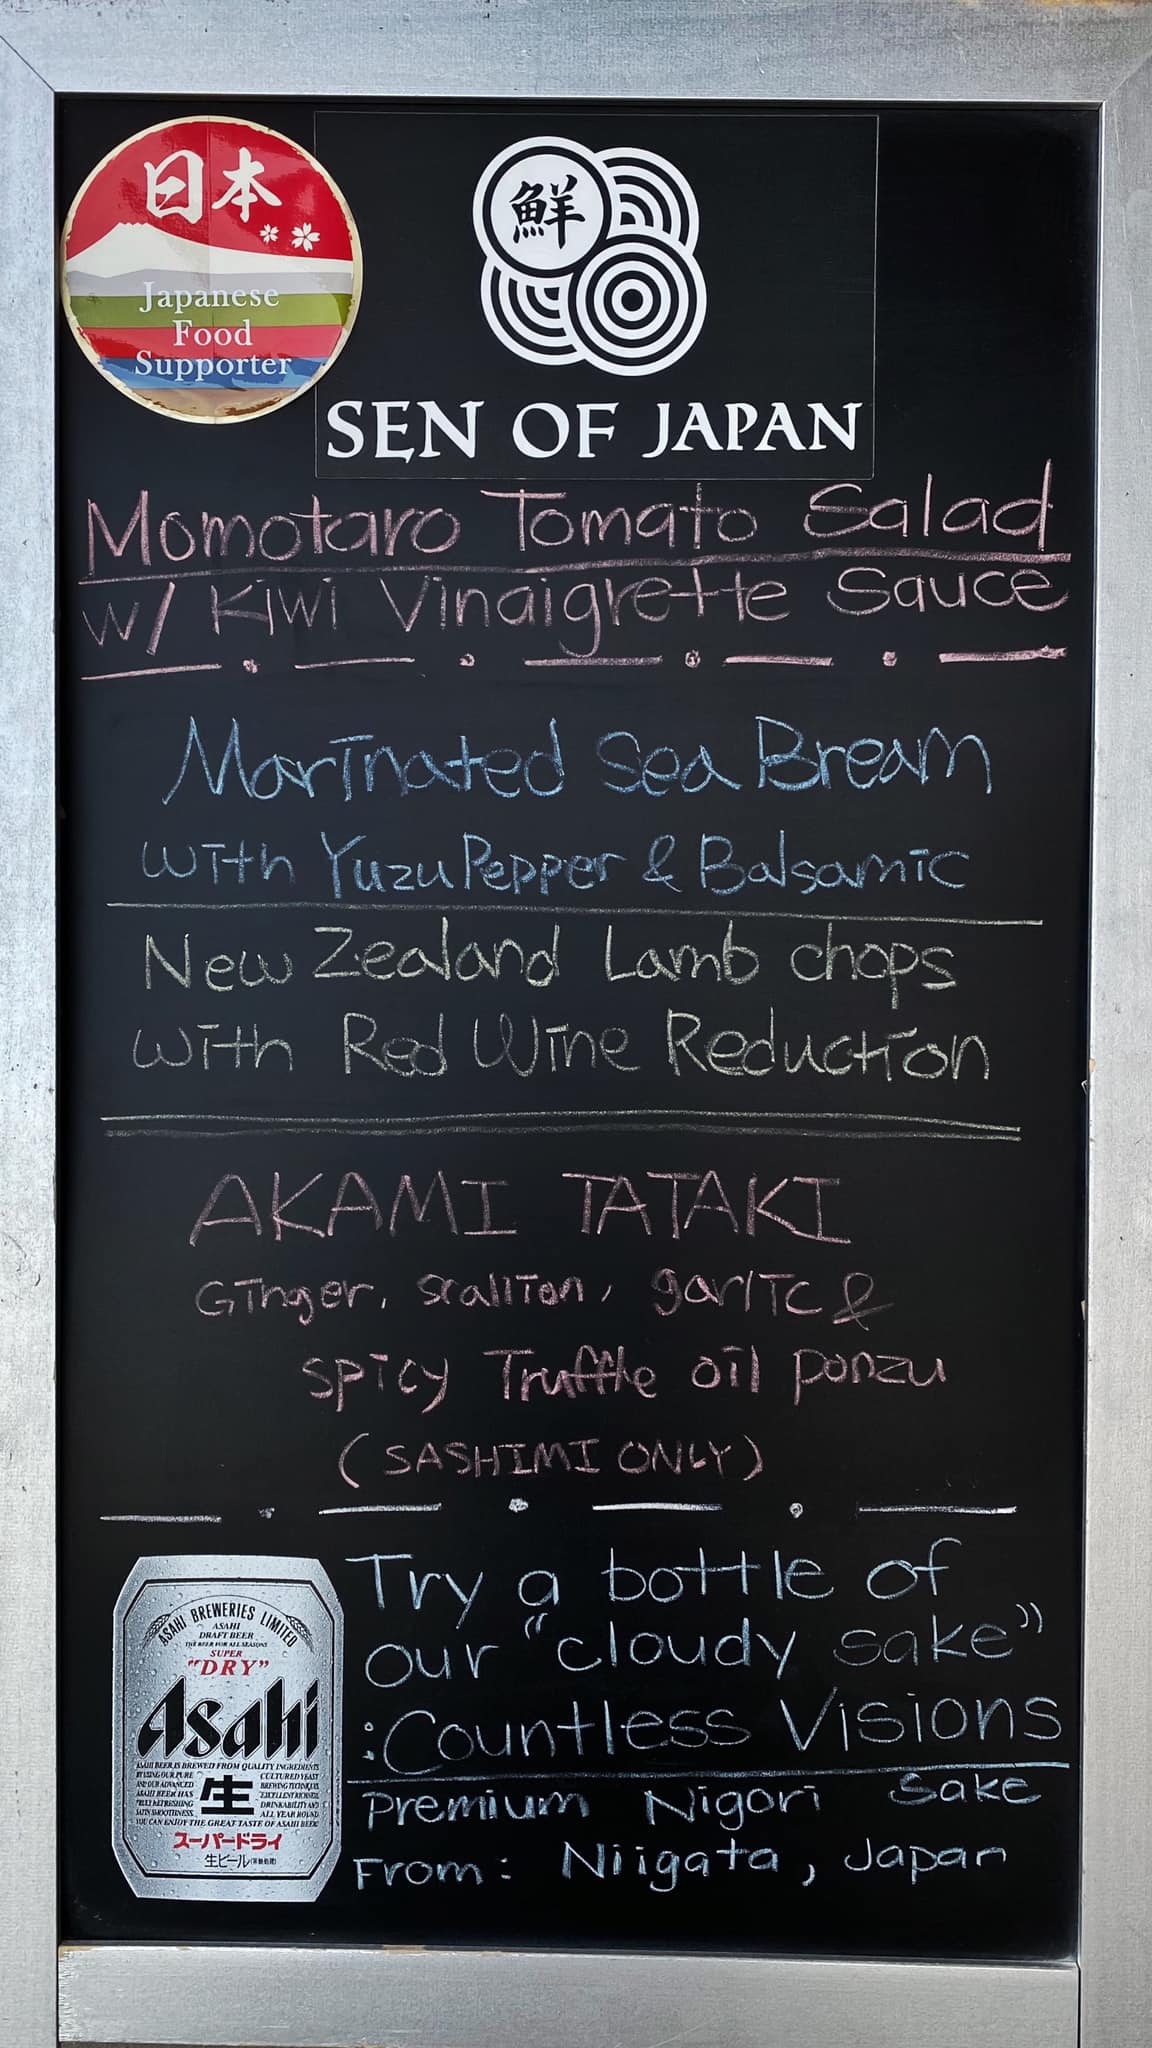 日本
Japanese
Food
Supporter
鮮
SEN OF JAPAN
Momotaro Tomato Salad
w/ Kiwi Vinaigrette Sauce
Marinated Sea Bream
with Yuzu Pepper & Balsamic
New Zealand Lamb chops
with Red Wine Reduction
AKAMI TATAKI
Ginger, scallion, garlic &
spicy Truffle oil ponzu
(SASHIMI ONLY)
Try a bottle of
our "cloudy sake"
:Countless Visions
Premium Nigori Sake
From: Niigata, Japan
ASAHI BREWERIES LIMITED
ASAHI
DRAFT BEER
THE BEER FOR ALL SEASONS
SUPER
"DRY"
Asahi
ASAHI BEER IS BREWED FROM QUALITY INGREDIENTS
BY USING OUR PURE CULTURED YEAST
AND OUR ADVANCED BREWING TECHNIQUES.
ASAHI BEER HAS EXCELLENT RICHNESS,
TRULY REFRESHING DRINKABILITY AND
SATIN SMOOTHNESS. ALL YEAR ROUND
YOU CAN ENJOY THE GREAT TASTE OF ASAHI BEER.
生
スーパードライ
生ビール